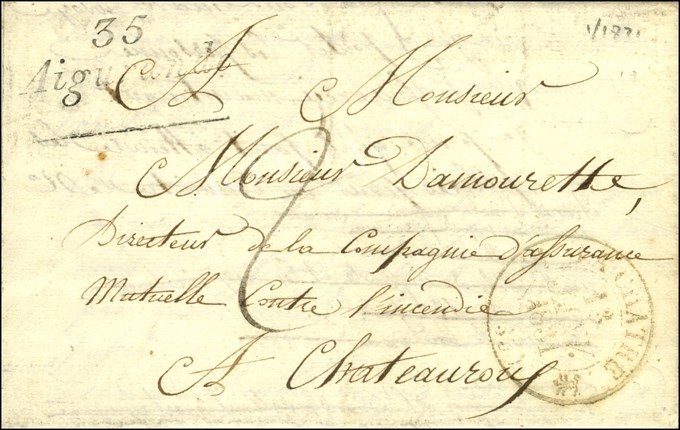 35
1/1831
A Monsieur
Monsieur Damourette,
Directeur de la Compagnie d'assurance
Mutuelle Contre l'incendie
A Chateauroux
CHATRE
2